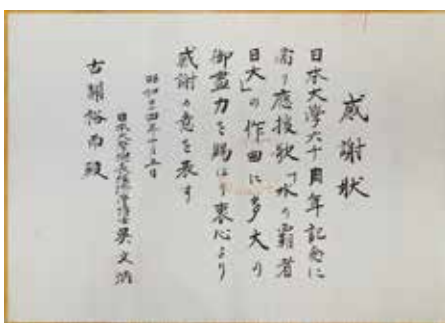 感謝状
日本大學六十周年記念に
當り應援歌「水の覇者
日大」の作曲に多大の
御盡力を賜はり衷心より
感謝の意を表す
昭和二十四年十月五日
日本大學總長經濟學博士呉文炳
古關裕而殿